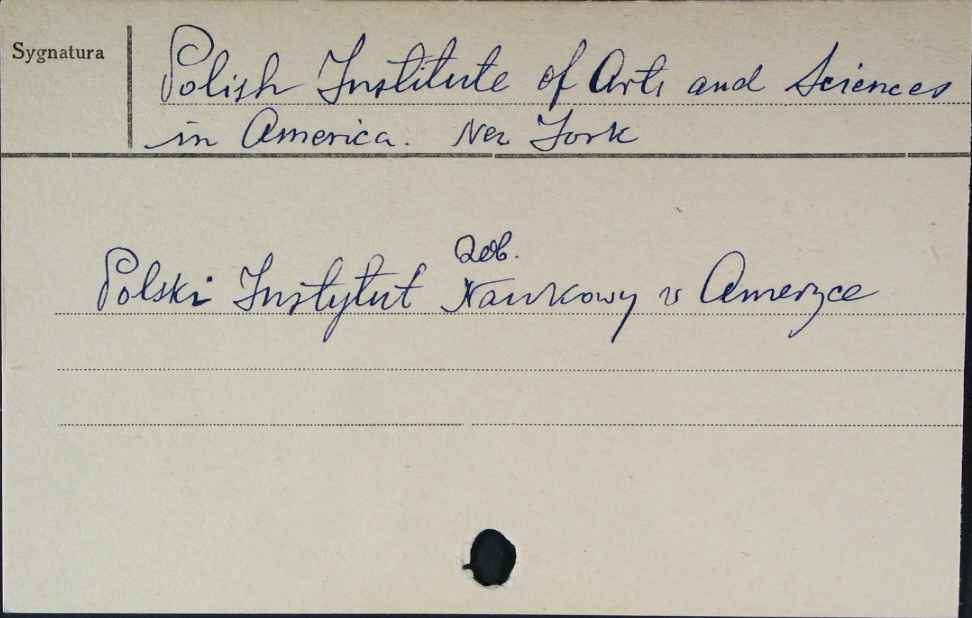 Sygnatura
Polish Institute of Arts and Sciences
in America. New York
Zob.
Polski Instytut Naukowy w Ameryce